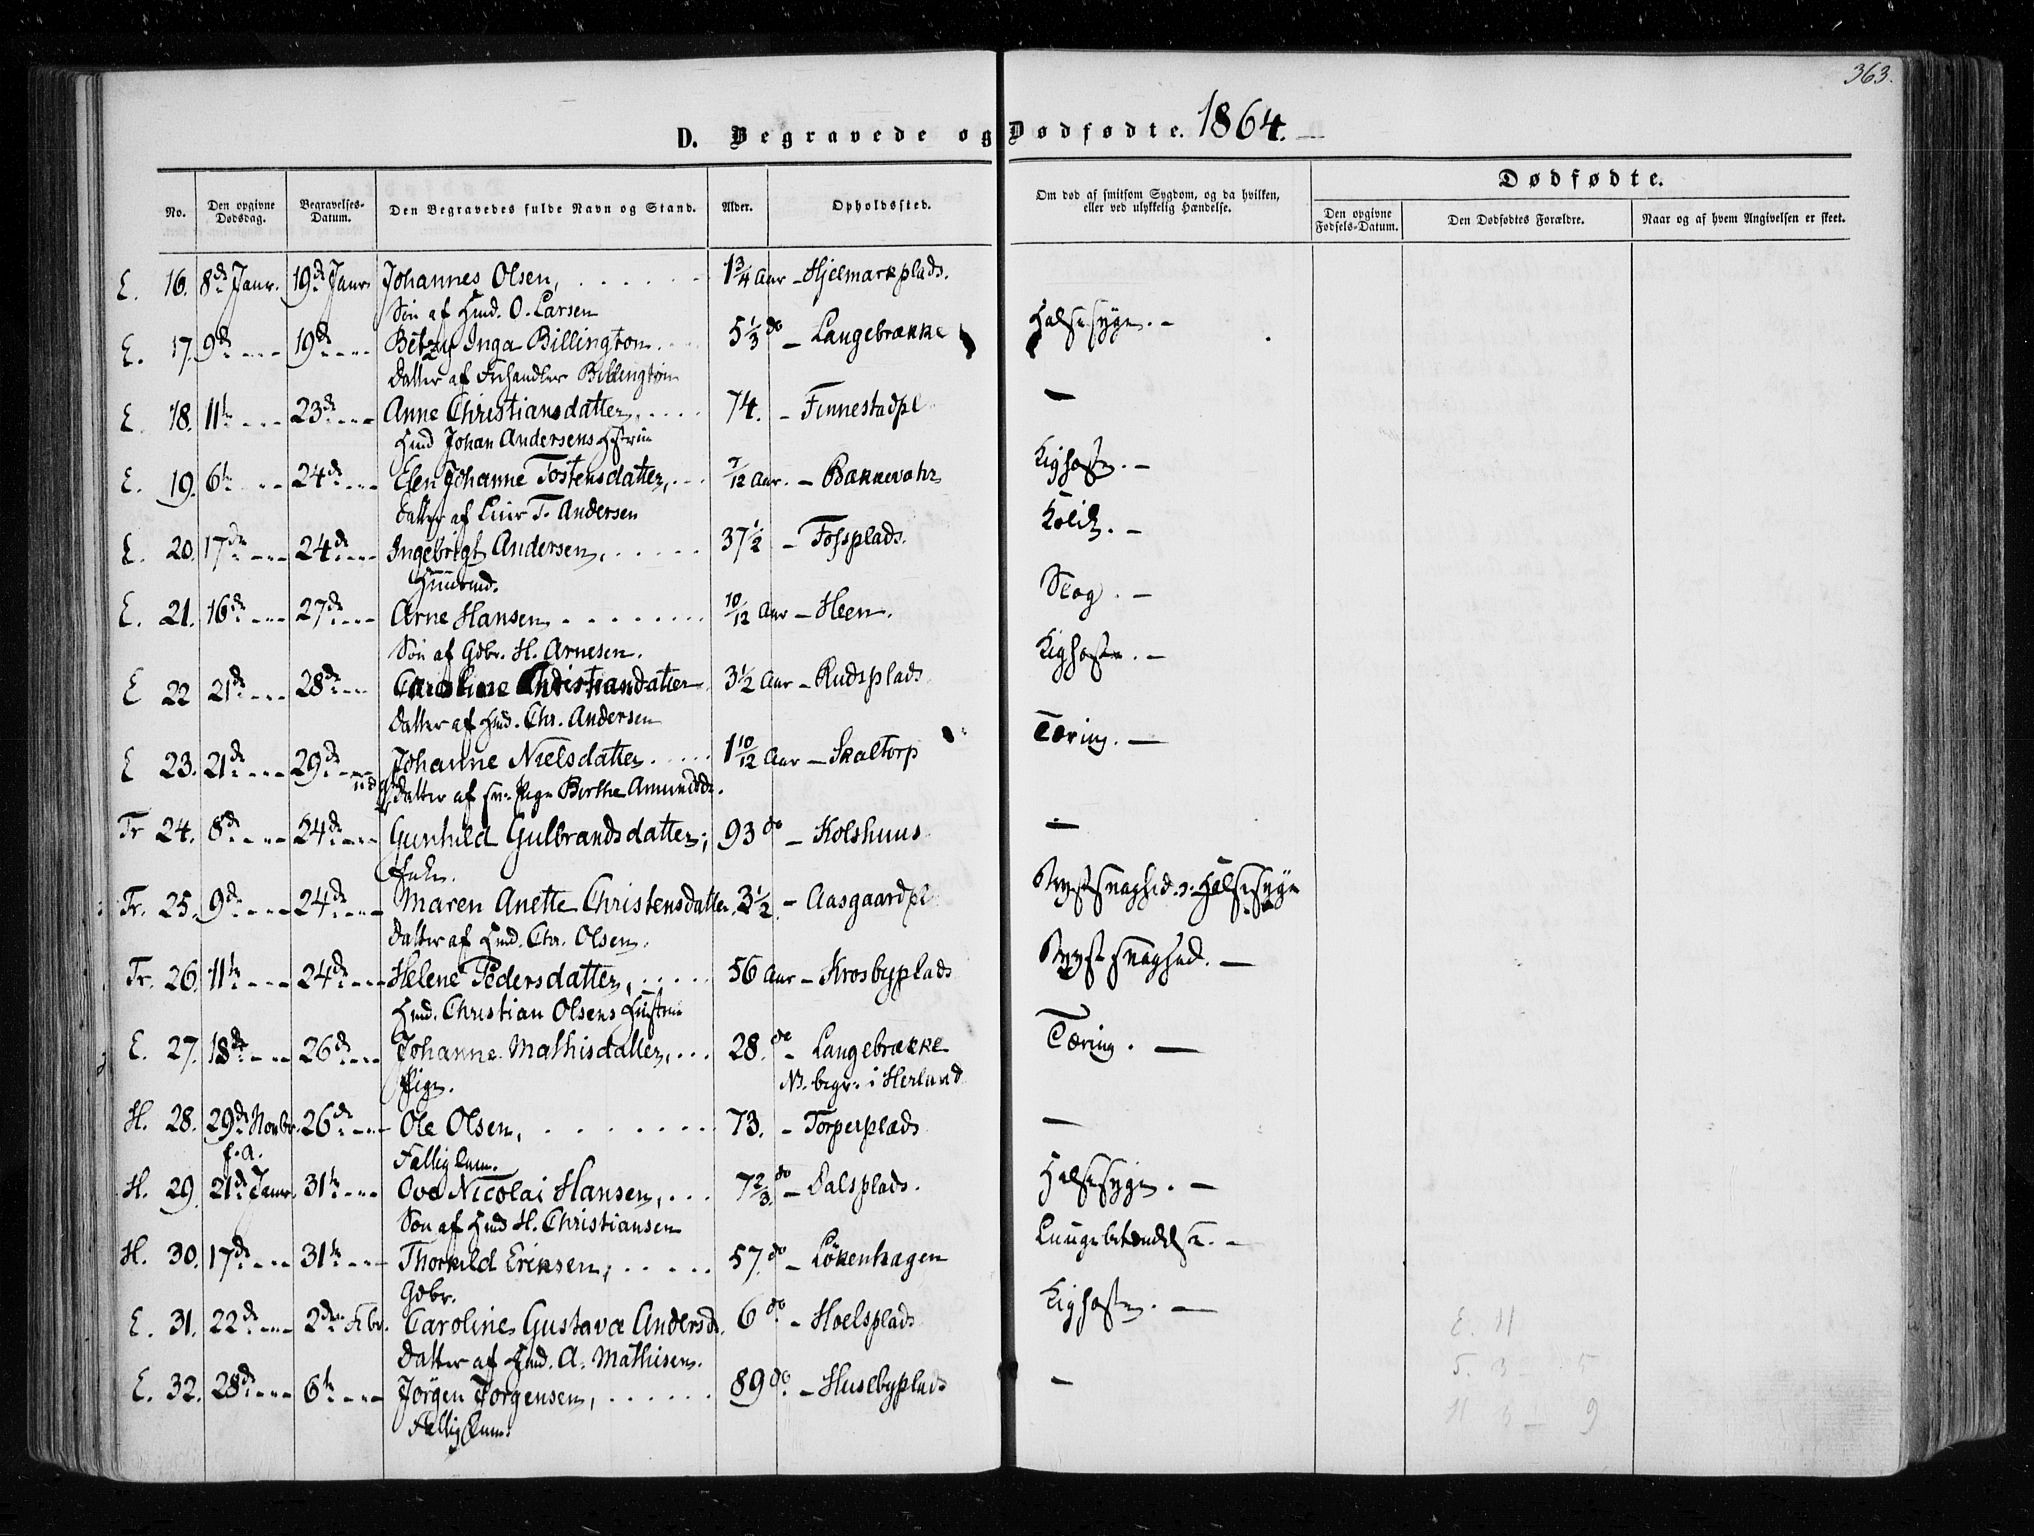 363.
D. Begravede og Dødfødte. 1864.
No. Den opgivne Dødsdag. Begravelses-Datum. Den Begravedes fulde Navn og Stand. Alder. Opholdssted. Om død af smitsom Sygdom, og da hvilken, eller ved ulykkelig Hændelse. Dødfødte.
Den opgivne Fødsels-Datum. Den Dødfødtes Forældre. Naar og af hvem Angivelsen er skeet.
E. 16. 8de Janr. 19de Janr. Johannes Olsen, 1 3/4 Aar - Hjelmarkplads.
Søn af Hmd. O. Larsen
E. 17. 9de 19de Betzy Inga Billington 5 1/3 do - Langebrække Halsesyge. -
Datter af Billington
E. 18. 11te 23de Anne Christiansdatter, 74. - Finnestadpl. -
Hmd Johan Andersens Hstru
E. 19. 6te 24de Elen Johanne Tostensdatter, 7/12 Aar. - Bakkevahr Kighoste. -
Datter af T. Andersen
E. 20. 17de 24de Ingebrigt Andersen, 37 1/2 - Fossplads. Kolik. -
Huusmd.
E. 21. 16de 27de Arne Hansen 10/12 Aar - Heen. -
Søn af Gdbr. H. Arnesen. Kighoste. -
E 22 21de 28de Caroline Christiandatter 3 1/2 Aar - Rudsplads
Datter af Hmd. Chr. Andersen
E 23. 21de 29de Johanne Nielsdatter 1 10/12 Aar - Skaltorp Tæring. -
Datter af Pige Berthe Amundsdr.
Tr 24. 8de 24de Gunhild Gulbrandsdatter; 93 do - Kolshuus -
Enke.
Tr. 25. 9de 24de Maren Anette Christensdatter, 3 1/2 - Aasgaardpl. Brystsvaghed o: Halsesyge
Datter af Hmd. Chr. Olsen.
Tr. 26. 11te 24de Helene Pedersdatter, 56 Aar - Krosbyplads Brystsvaghed. -
Hmd. Christian Olsens Hustru
E. 27. 18de 26de Johanne Mathisdatter, 28. do - Langebrække Tæring. -
Pige. NB. begr. i Herland
H. 28. 29de Novbr. 26de Ole Olsen, 73. - Torperplads -
f. A. Fattiglem.
H. 29. 21de Janr. 31te Ove Nicolai Hansen, 7 2/3 do - Dalsplads. Halsesyge. -
Søn af Hmd H. Christiansen
H. 30. 17de 31te Thorkild Eriksen, 57. do - Lökenhagen Lungebetændelse. -
Gdbr.
E. 31. 22de 2den Febr. Caroline Gustava Andersdr. 6 do - Hoelsplads Kighoste. -
Datter af Hmd. A. Mathisen.
E. 32. 28de 6te Jörgen Jorgensen, 89 do. - Husebyplads -
Fattiglem.
E. 11
5. 3 5
H 3 - 9